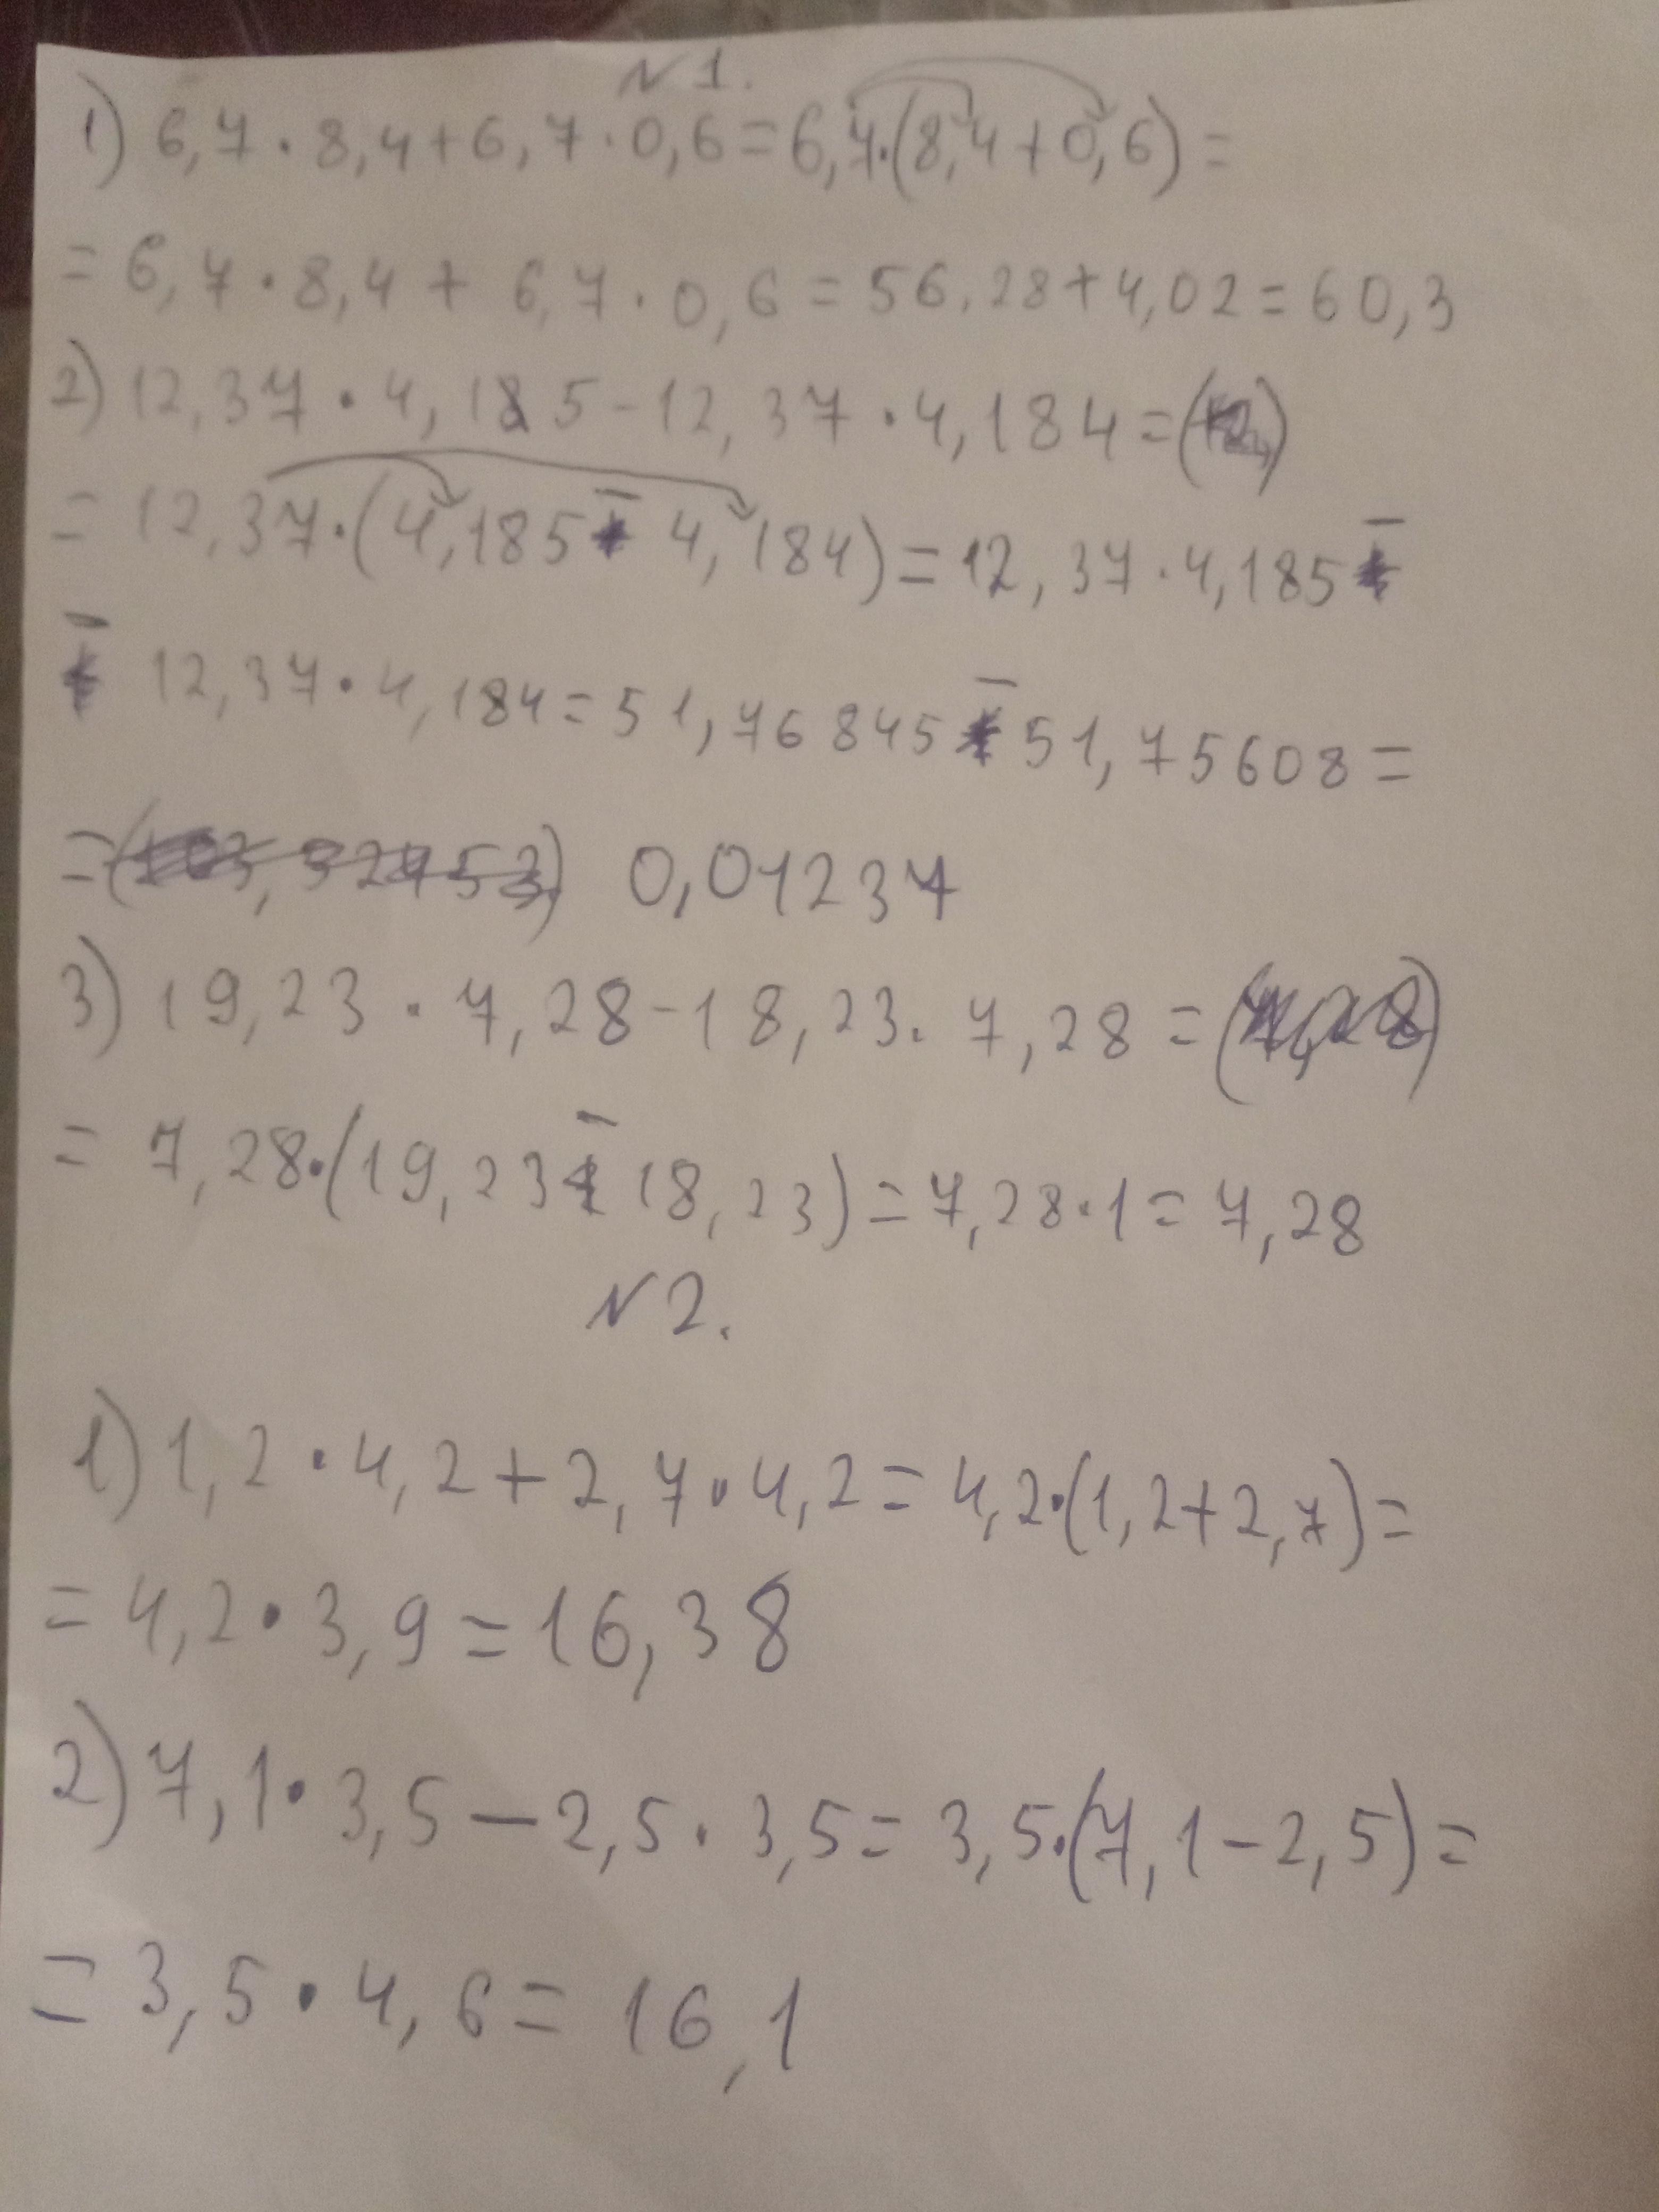 N 1.
1) 6,7 · 8,4 + 6,7 · 0,6 = 6,7·(8,4 + 0,6) =
= 6,7 · 8,4 + 6,7 · 0,6 = 56,28 + 4,02 = 60,3
2) 12,37 · 4,185 - 12,37 · 4,184 =
= 12,37·(4,185 - 4,184) = 12,37 · 4,185 -
- 12,37 · 4,184 = 51,76845 - 51,75608 =
= 0,01237
3) 19,23 · 7,28 - 18,23 · 7,28 =
= 7,28·(19,23 - 18,23) = 7,28 · 1 = 7,28
N 2.
1) 1,2 · 4,2 + 2,7 · 4,2 = 4,2·(1,2 + 2,7) =
= 4,2 · 3,9 = 16,38
2) 7,1 · 3,5 - 2,5 · 3,5 = 3,5·(7,1 - 2,5) =
= 3,5 · 4,6 = 16,1